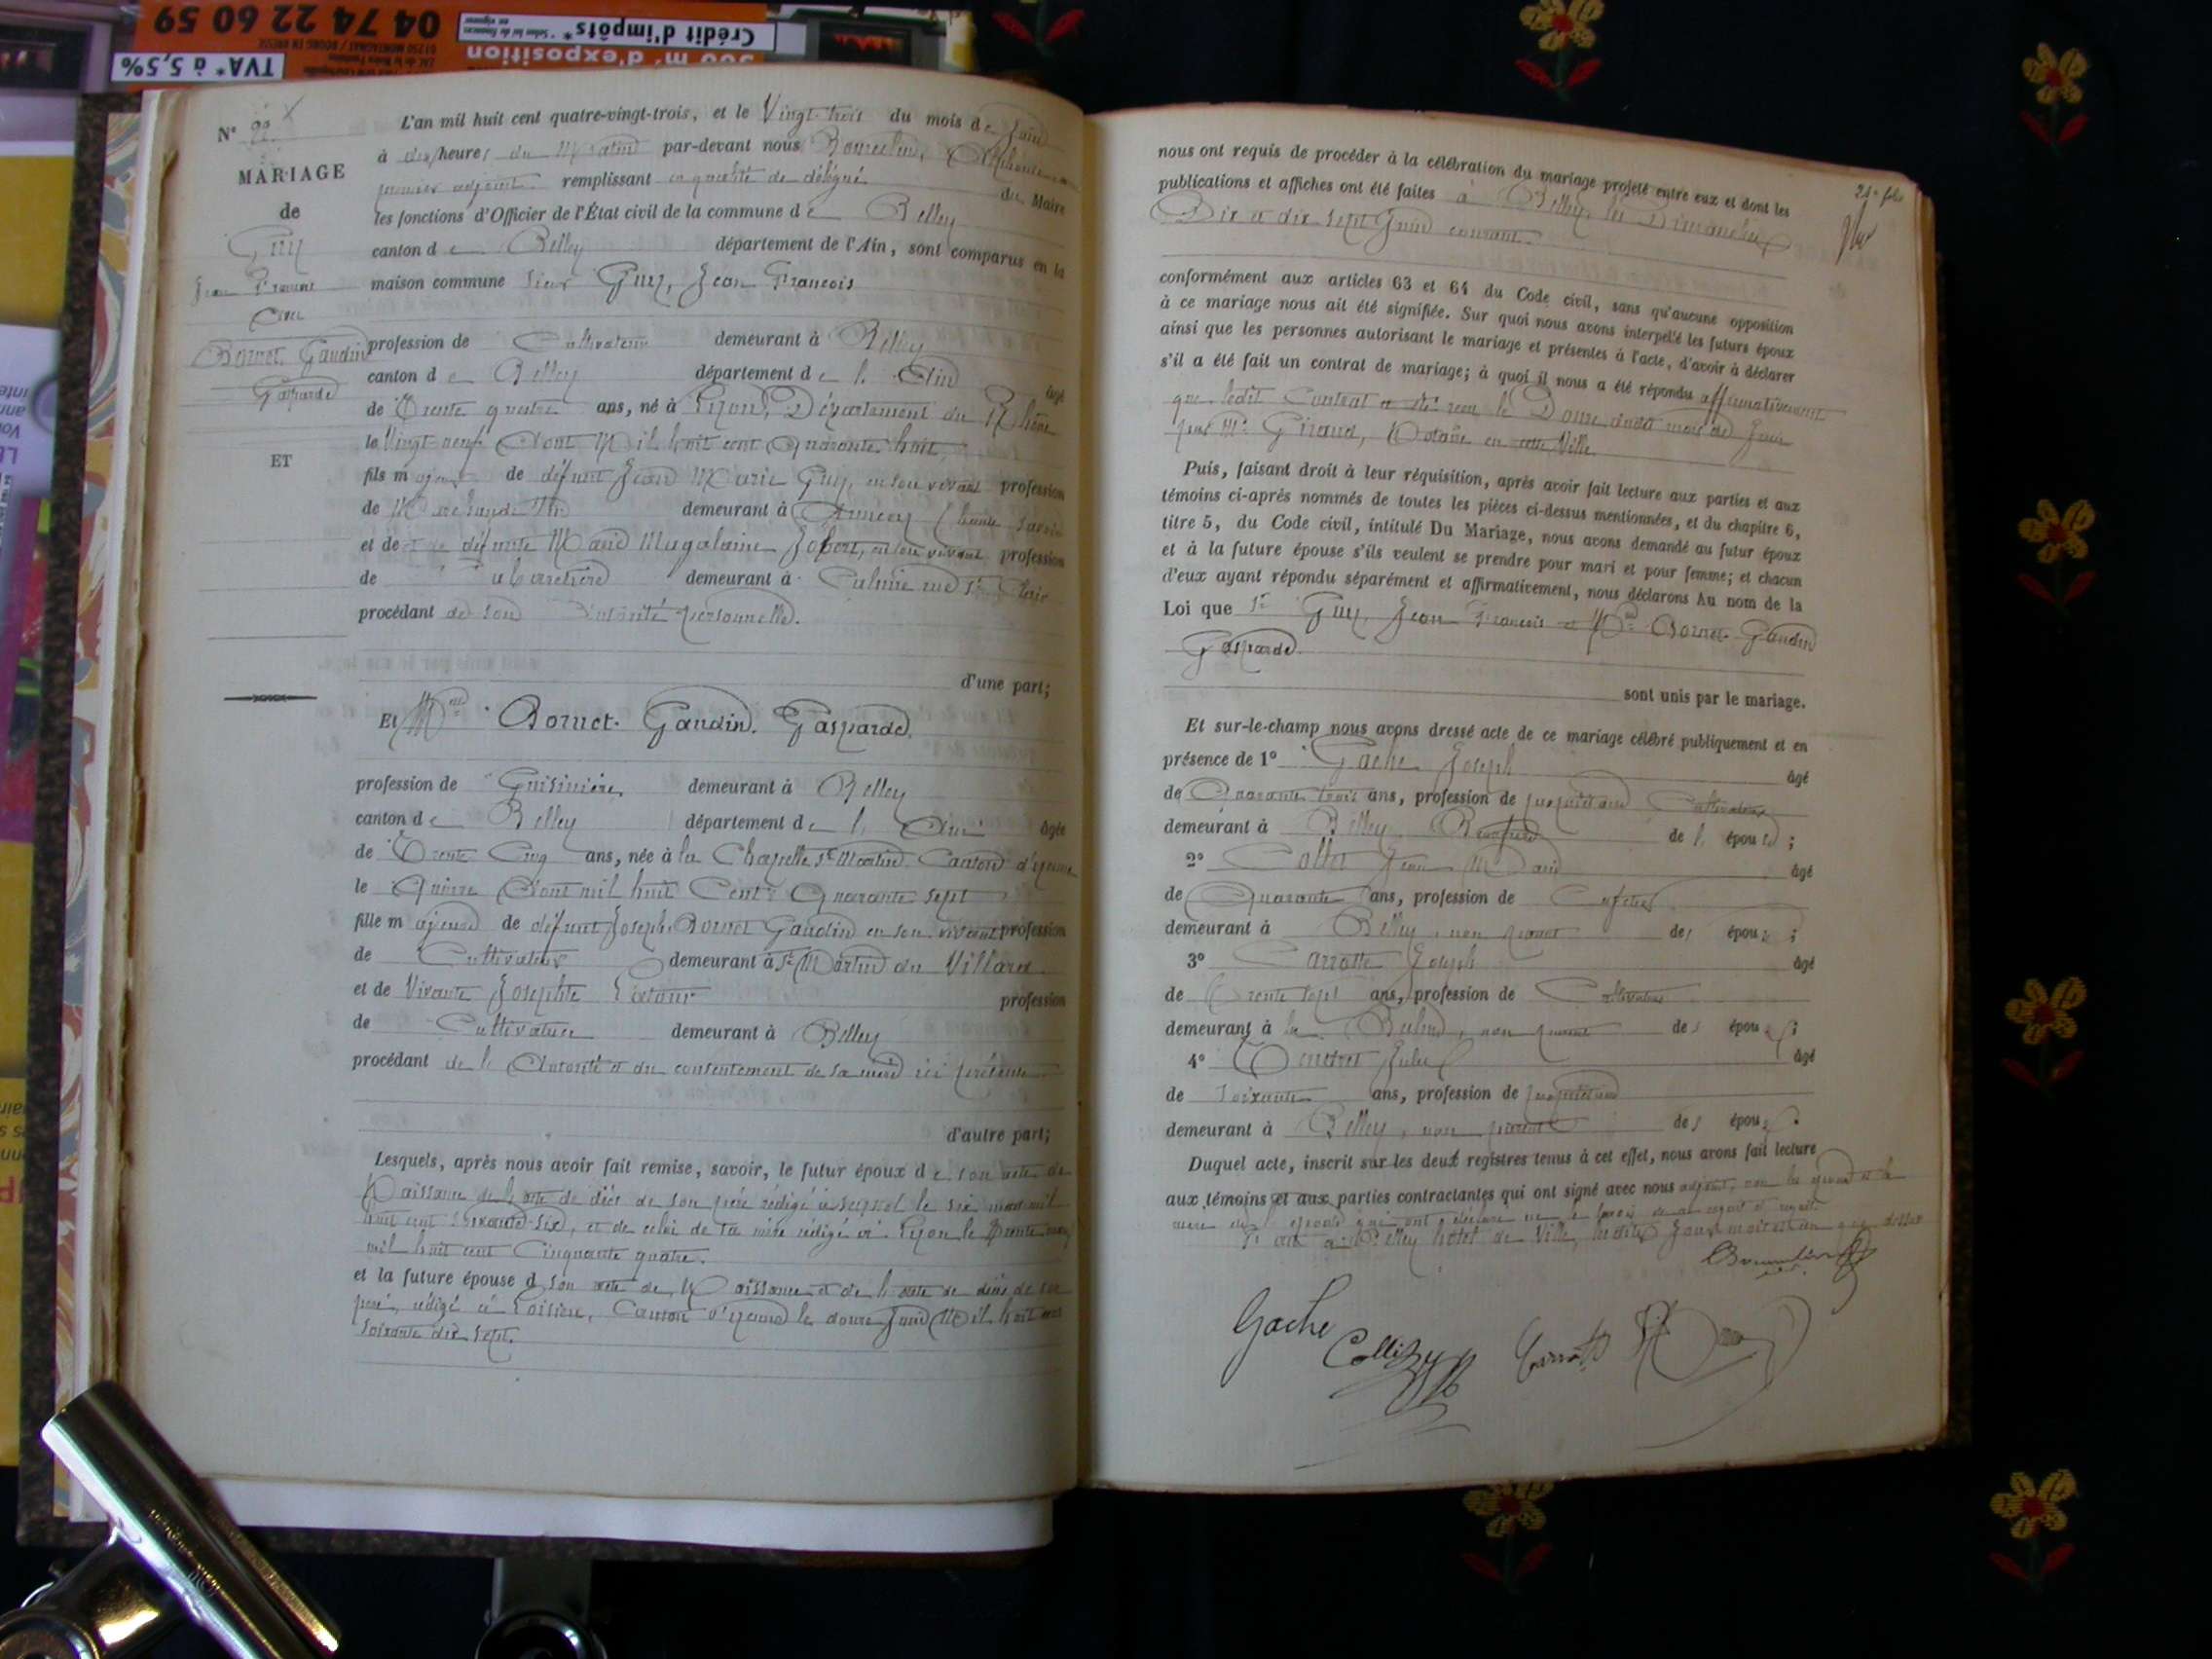 04 74 22 60 59
01250 MONTAGNAT / BOURG EN BRESSE
TVA* à 5,5%
Crédit d'impôts*
300 m² d'exposition
N°
MARIAGE
de
Guy
Jean François
avec
Bornet Gaudin
Gasparde
ET
L'an mil huit cent quatre-vingt-trois, et le Vingt trois du mois de Juin
à dix heures du Matin par-devant nous
premier adjoint remplissant en qualité de délégué du Maire
les fonctions d'Officier de l'État civil de la commune de Belley
canton de Belley département de l'Ain, sont comparus en la
maison commune sieur Guy, Jean François
profession de Cultivateur demeurant à Belley
canton de Belley département de l'Ain âgé
de Trente quatre ans, né à Lyon, Département du Rhône
le Vingt neuf Août Mil huit cent Quarante huit,
fils majeur de défunt Jean Marie Guy, en son vivant profession
de demeurant à Annecy (haute Savoie
et de défunte Marie Magdelaine en son vivant profession
de demeurant à rue St Clair
procédant de son autorité personnelle.
d'une part;
Et Mlle Bornet Gaudin Gasparde,
profession de Cuisinière demeurant à Belley
canton de Belley département de l'Ain âgée
de Trente Cinq ans, née à la Chapelle St Martin Canton d'yenne
le Quinze Août mil huit Cent Quarante sept
fille majeure de défunt Joseph Bornet Gaudin en son vivant profession
de Cultivateur demeurant à St Martin du Villard
et de Vivante Josephte profession
de Cultivatrice demeurant à Belley
procédant de l'Autorité et du consentement de sa mère ici présente
d'autre part;
Lesquels, après nous avoir fait remise, savoir, le futur époux de son acte de
Naissance de l'acte de décès de son père rédigé à le six mil
huit cent soixante six, et de celui de sa mère rédigé à Lyon le trente
mil huit cent Cinquante quatre.
et la future épouse d son acte de Naissance et de l'acte de décès de son
père, rédigé à Loisieux, Canton d'yenne le douze Juin Mil huit cent
soixante dix sept.
nous ont requis de procéder à la célébration du mariage projeté entre eux et dont les
publications et affiches ont été faites à Belley les Dimanches
Dix et dix sept Juin courant.
conformément aux articles 63 et 64 du Code civil, sans qu'aucune opposition
à ce mariage nous ait été signifiée. Sur quoi nous avons interpellé les futurs époux
ainsi que les personnes autorisant le mariage et présentes à l'acte, d'avoir à déclarer
s'il a été fait un contrat de mariage; à quoi il nous a été répondu affirmativement
que ledit Contrat a été reçu le Douze dudit mois de Juin
par Me Giraud, Notaire en cette Ville
Puis, faisant droit à leur réquisition, après avoir fait lecture aux parties et aux
témoins ci-après nommés de toutes les pièces ci-dessus mentionnées, et du chapitre 6,
titre 5, du Code civil, intitulé Du Mariage, nous avons demandé au futur époux
et à la future épouse s'ils veulent se prendre pour mari et pour femme; et chacun
d'eux ayant répondu séparément et affirmativement, nous déclarons Au nom de la
Loi que Sr Guy, Jean François et Mlle Bornet Gaudin
Gasparde
sont unis par le mariage.
Et sur-le-champ nous avons dressé acte de ce mariage célébré publiquement et en
présence de 1° Gache Joseph âgé
de Quarante trois ans, profession de propriétaire Cultivateur
demeurant à Belley de l'épouse;
2° Jean Marie âgé
de Quarante ans, profession de Cafetier
demeurant à Belley, non parent des époux;
3° Carrotte Joseph âgé
de Trente sept ans, profession de Cultivateur
demeurant à non parent des époux;
4° Jules âgé
de soixante ans, profession de propriétaire
demeurant à Belley, non parent des époux.
Duquel acte, inscrit sur les deux registres tenus à cet effet, nous avons fait lecture
aux témoins et aux parties contractantes qui ont signé avec nous adjoint, non les époux et la
mère de l'épouse qui ont déclaré ne le savoir de ce requis
Fait à Belley hôtel de Ville, lesdits Jour mois et an que dessus
Gache